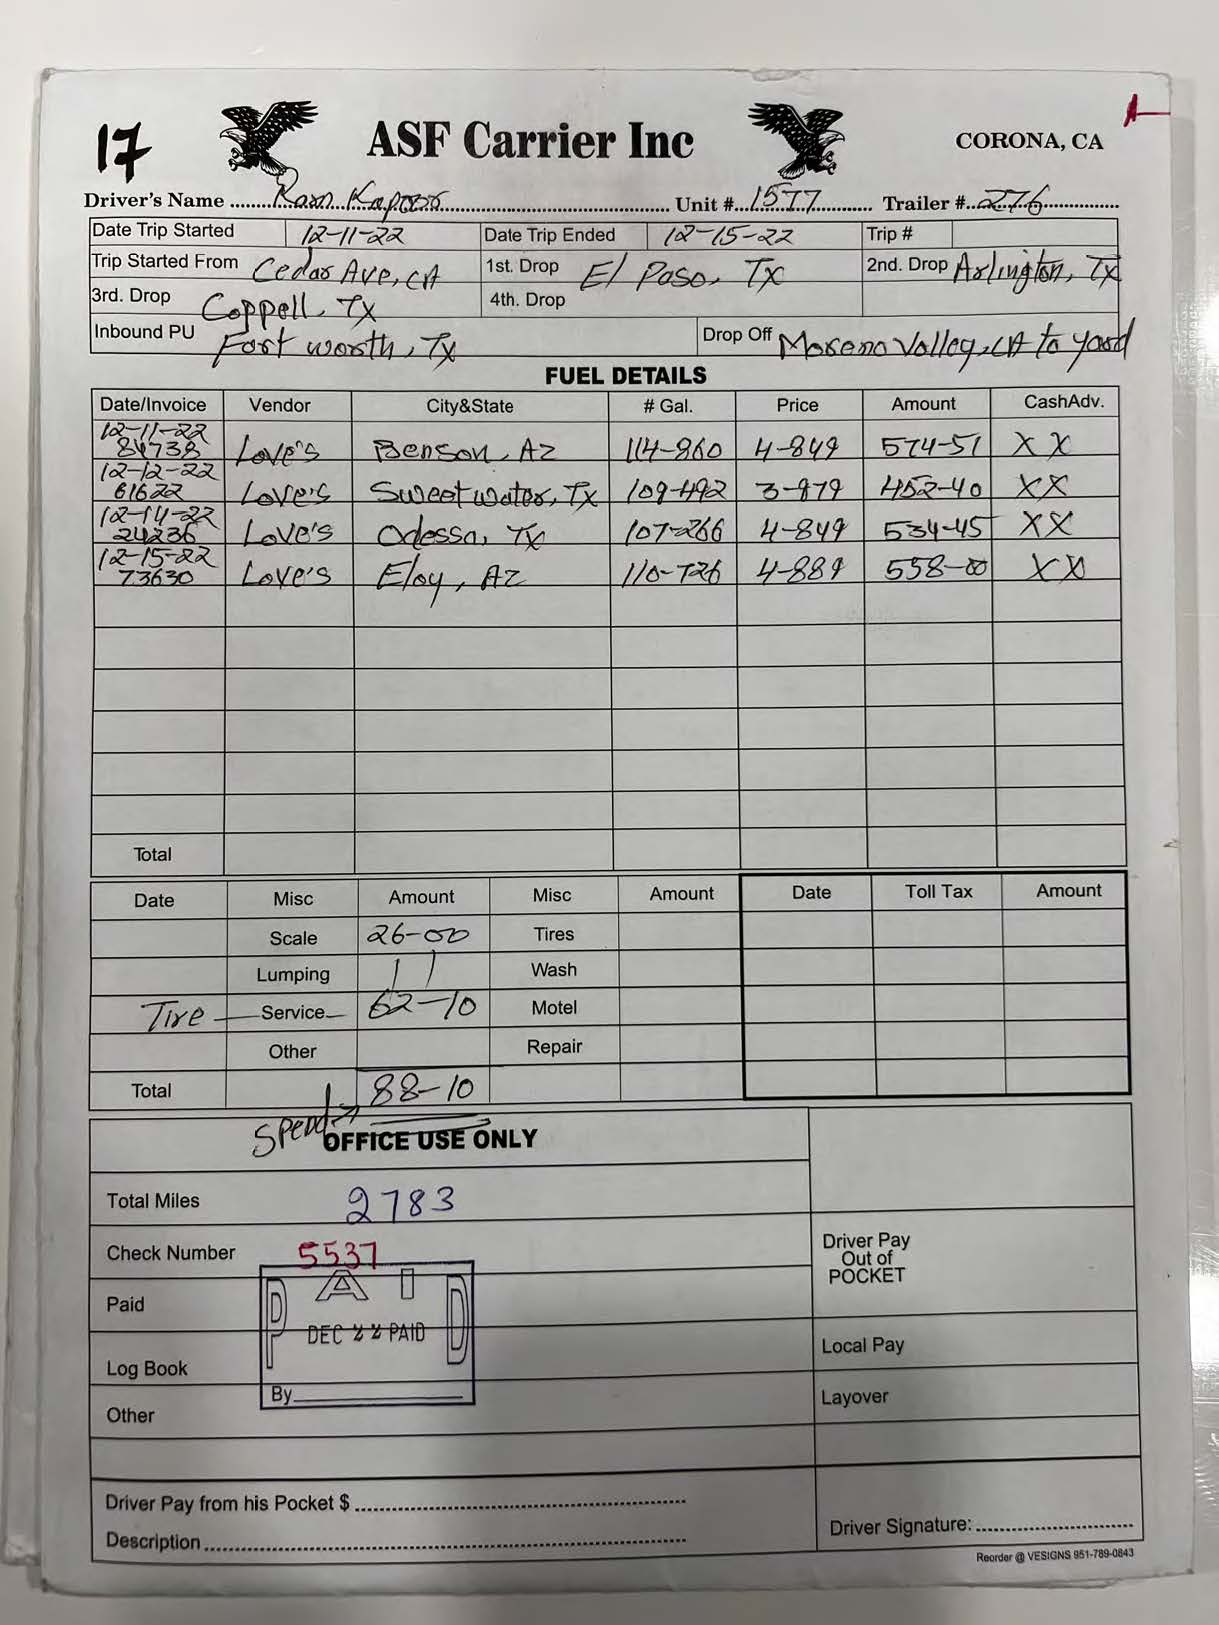 17
ASF Carrier Inc
CORONA, CA
Driver's Name Karn Kapoor Unit # 1577 Trailer # 276
Date Trip Started 12-11-22 Date Trip Ended 12-15-22 Trip #
Trip Started From Cedar Ave, CA 1st. Drop El Paso, Tx 2nd. Drop Arlington, Tx
3rd. Drop Coppell, Tx 4th. Drop
Inbound PU Fort worth, Tx Drop Off Moreno Valley, CA to yard
FUEL DETAILS
Date/Invoice Vendor City&State # Gal. Price Amount CashAdv.
12-11-22
84738 Love's Benson, Az 114-860 4-849 574-51 XX
12-12-22
61622 Love's Sweetwater, Tx 109-492 3-979 452-40 XX
12-14-22
24236 Love's Odessa, Tx 107-266 4-849 534-45 XX
12-15-22
73630 Love's Eloy, AZ 110-726 4-889 558-00 XX
Total
Date Misc Amount Misc Amount Date Toll Tax Amount
Scale 26-00 Tires
Lumping Wash
Tire Service 62-10 Motel
Other Repair
Total 88-10
Spend
OFFICE USE ONLY
Total Miles 2783
Check Number 5537
Driver Pay
Out of
POCKET
Paid
PAID
DEC 22 PAID
By
Local Pay
Log Book
Layover
Other
Driver Pay from his Pocket $
Description
Driver Signature:
Reorder @ VESIGNS 951-789-0843